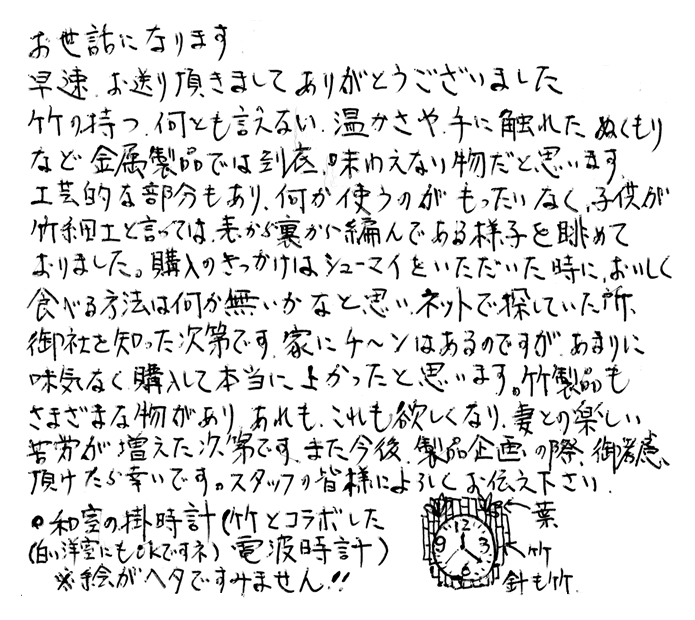 お世話になります
早速 お送り頂きまして ありがとうございました
竹の持つ、何とも言えない、温かさや、手に触れた ぬくもり
など 金属製品では到底、味わえない物だと思います
工芸的な部分もあり、何か使うのが もったいなく、子供が
竹細工と言っては、表から裏から編んである様子を眺めて
おりました。購入のきっかけはシューマイをいただいた時に、おいしく
食べる方法は何か無いかなと思い、ネットで探していた所、
御社を知った次第です。家にチ〜ンはあるのですが、あまりに
味気なく、購入して本当に よかったと思います。竹製品も
さまざまな物があり、あれも、これも欲しくなり、妻との楽しい
苦労が増えた次第です。また今後、製品企画の際、御考慮、
頂けたら幸いです。スタッフの皆様によろしくお伝え下さい。
○和室の掛時計(竹とコラボした
(白い洋室にもOKですネ) 電波時計)
※手絵がヘタですみません!!
葉
竹
針も竹
12
3
6
9